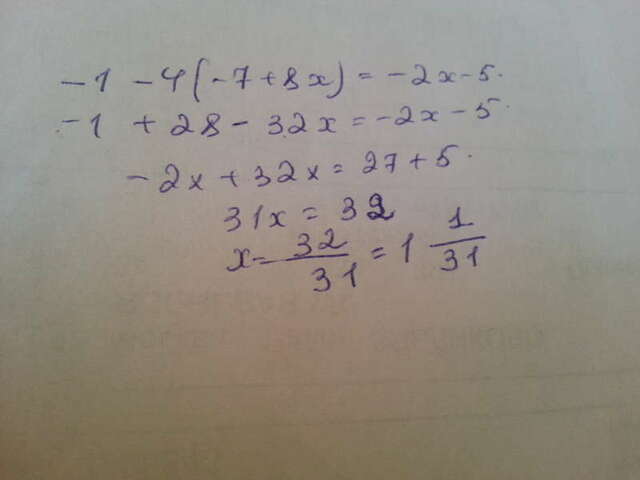 -1 -4(-7+8x)=-2x-5.
-1 +28-32x=-2x-5.
-2x+32x=27+5.
31x=32
x=32/31=1 1/31